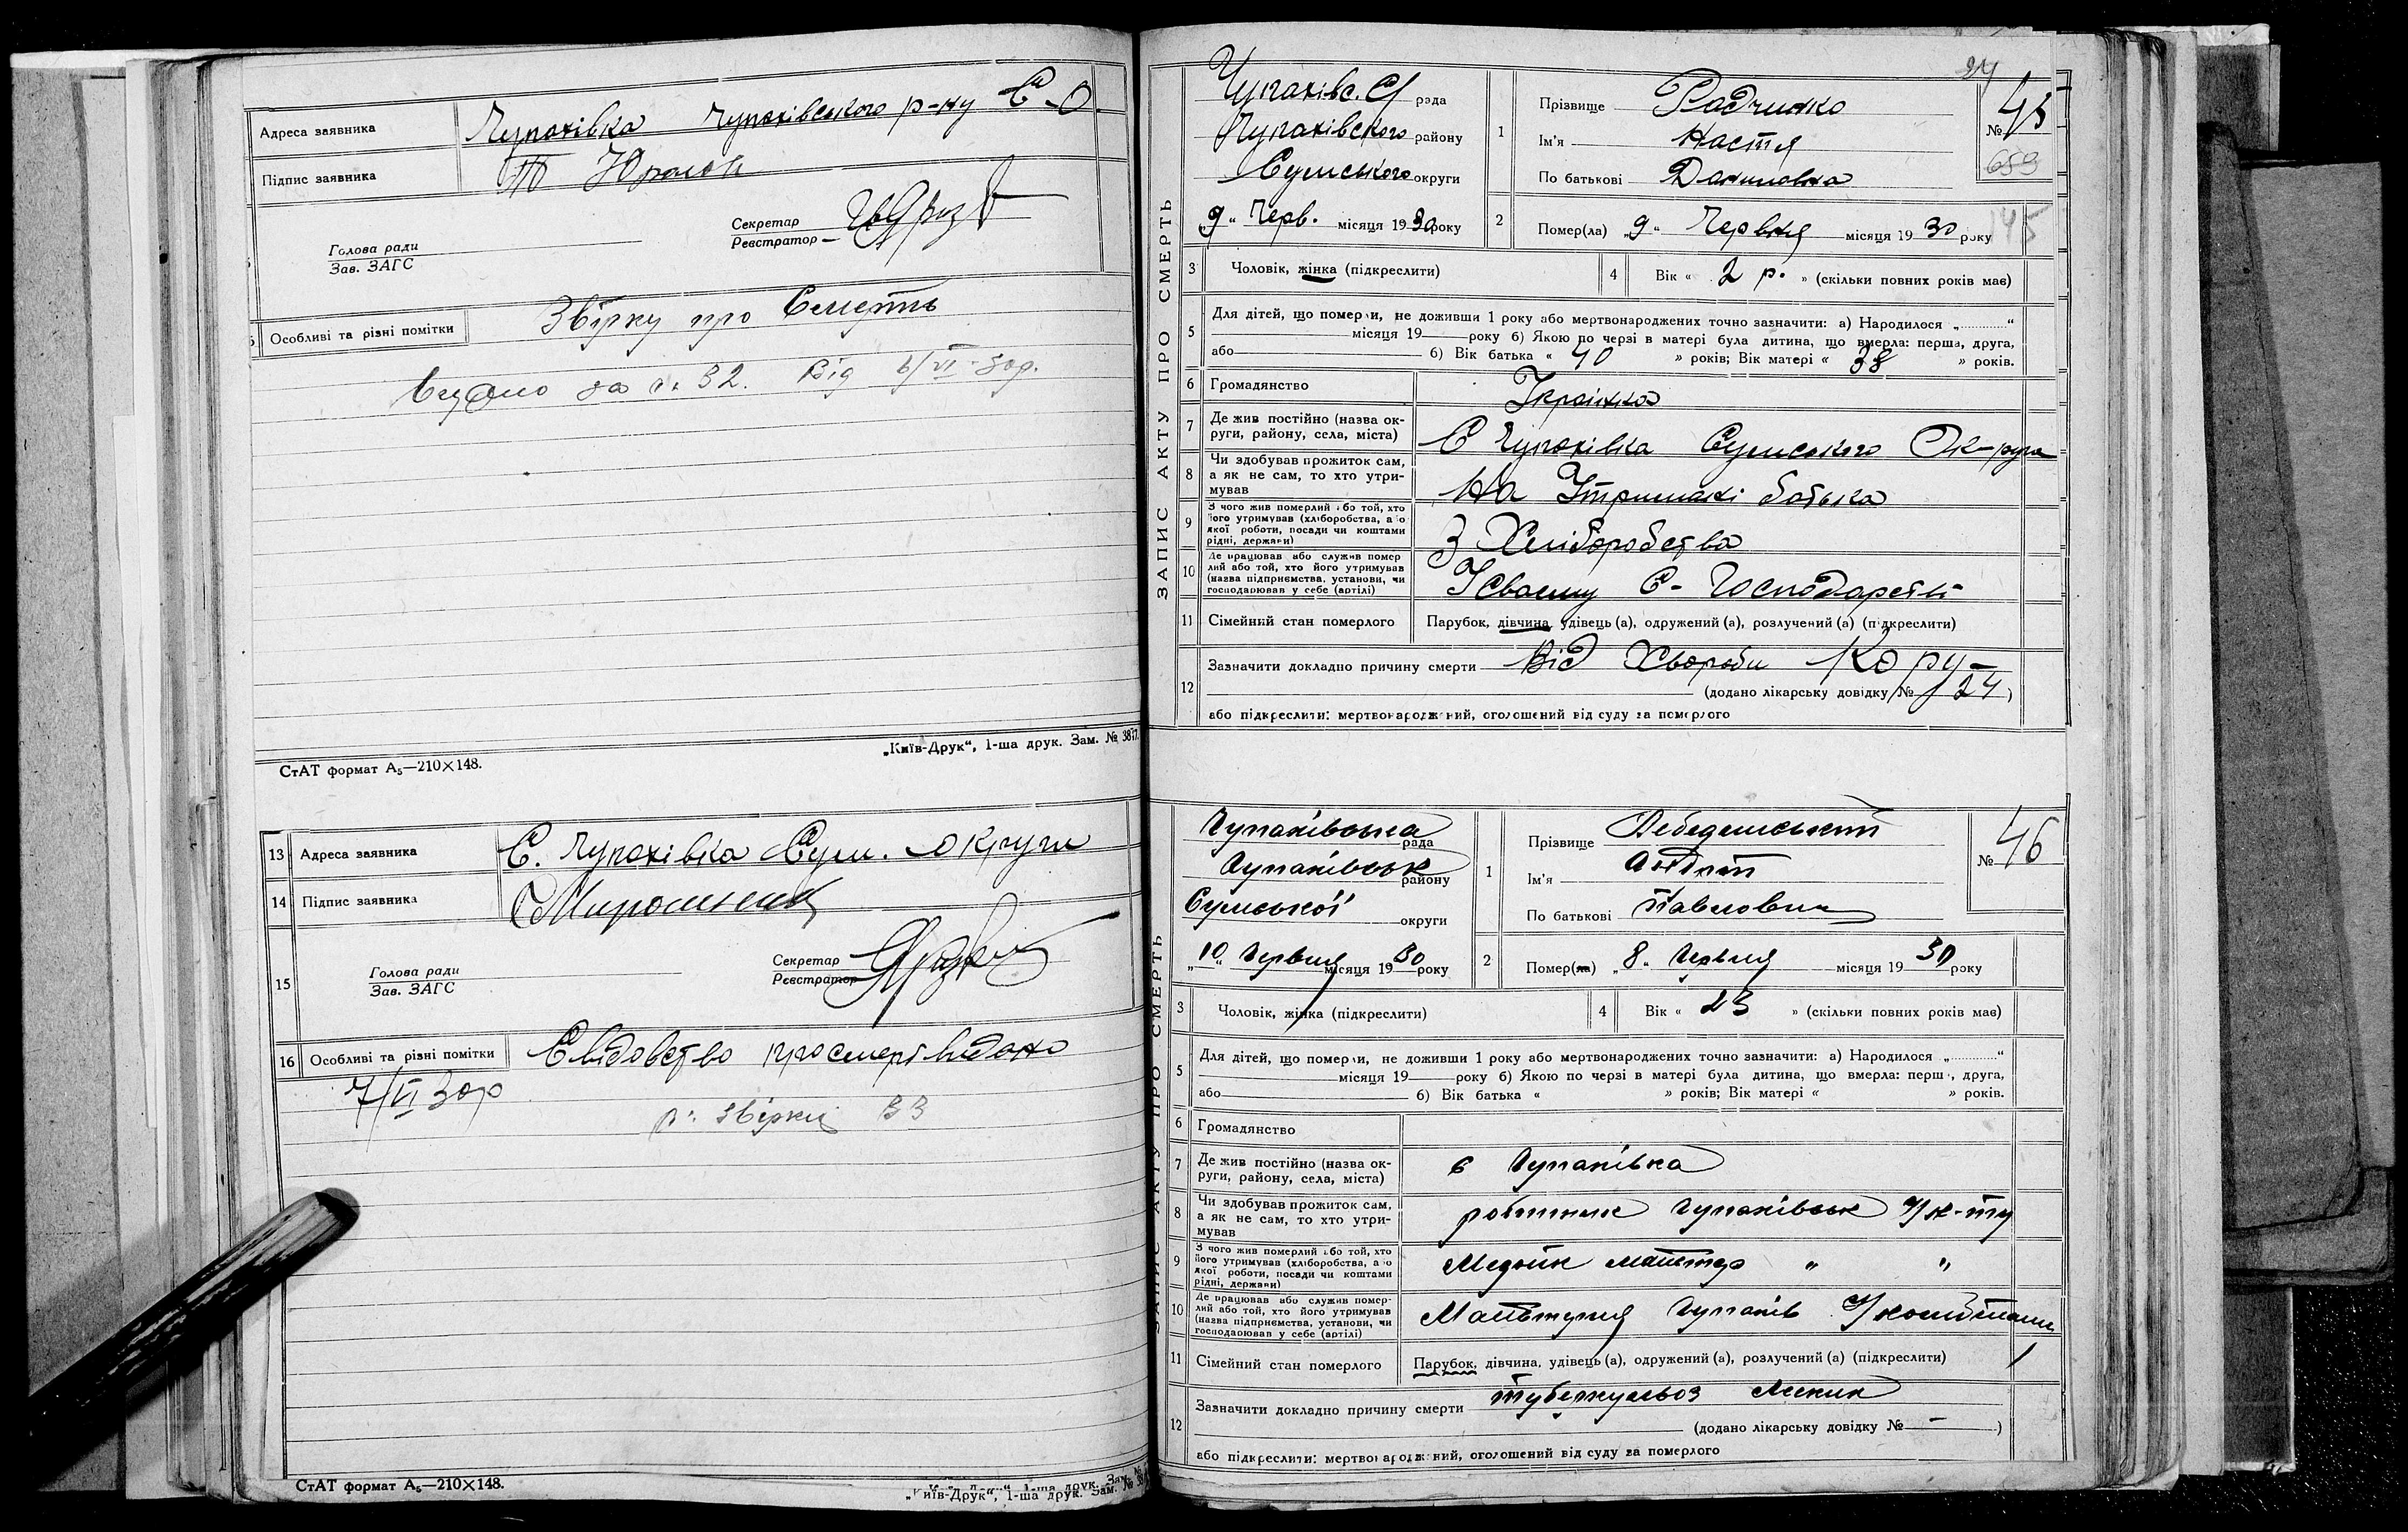 Адреса заявника Чупахівка Чупахівського р-ну С-О
Підпис заявника
Секретар
Реєстратор
Голова ради
Зав. ЗАГС
Особливі та різні помітки Звірку про Смерть
Видано за №: 32. Від 6/VI-30р.
„Київ-Друк“, 1-ша друк. Зам. № 3877.
СтАТ формат А₅—210×148.
13 Адреса заявника С. Чупахівка Сум. округи
14 Підпис заявника Мирошник
15
Секретар
Реєстратор
Голова ради
Зав. ЗАГС
16 Особливі та різні помітки Свідовство про смерт видано
7/VI 30р
№: звірки 33
СтАТ формат А₅—210×148.
„Київ-Друк“, 1-ша друк. Зам. №
24
ЗАПИС АКТУ ПРО СМЕРТЬ
Чупахівс. С/ рада
Чупахівского району
Сумського округи
„9“ Черв. місяця 1930 року
1 Прізвище Радченко
Ім'я Настя
По батькові Даниловна
№ 45
659
145
2 Помер(ла) „9“ Червня місяця 1930 року
3 Чоловік, жінка (підкреслити)
4 Вік « 2 р. » (скільки повних років має)
5 Для дітей, що померли, не доживши 1 року або мертвонароджених точно зазначити: а) Народилося „............“
місяця 19 року б) Якою по черзі в матері була дитина, що вмерла: перша, друга,
або б) Вік батька « 40 » років; Вік матері « 38 » років.
6 Громадянство Українка
7 Де жив постійно (назва округи, району, села, міста) С Чупахівка Сумського Ок-руга
8 Чи здобував прожиток сам, а як не сам, то хто утримував На Утримані батька
9 З чого жив померлий або той, хто його утримував (хліборобства, або якої роботи, посади чи коштами рідні, держави) З Хліборобства
10 Де працював або служив померлий або той, хто його утримував (назва підприємства, установи, чи господарював у себе (артілі) У Своему С-Господарстві
11 Сімейний стан померлого Парубок, дівчина, удівець (а), одружений (а), розлучений (а) (підкреслити)
12 Зазначити докладно причину смерти Від Хвороби Кору-
(додано лікарську довідку № 24)
або підкреслити: мертвонароджений, оголошений від суду за померлого
ЗАПИС АКТУ ПРО СМЕРТЬ
Чупахівська рада
Чупахівськ району
Сумської округи
„10“ Червня місяця 1930 року
1 Прізвище
Ім'я Андрій
По батькові Павлович
№ 46
2 Помер(ла) „8“ Червня місяця 1930 року
3 Чоловік, жінка (підкреслити)
4 Вік « 23 » (скільки повних років має)
5 Для дітей, що померли, не доживши 1 року або мертвонароджених точно зазначити: а) Народилося „............“
місяця 19 року б) Якою по черзі в матері була дитина, що вмерла: перша, друга,
або б) Вік батька « » років; Вік матері « » років.
6 Громадянство
7 Де жив постійно (назва округи, району, села, міста) с Чупахівка
8 Чи здобував прожиток сам, а як не сам, то хто утримував робітник Чупахівськ Ц/к-ту
9 З чого жив померлий або той, хто його утримував (хліборобства, або якої роботи, посади чи коштами рідні, держави) майстер „ „
10 Де працював або служив померлий або той, хто його утримував (назва підприємства, установи, чи господарював у себе (артілі) Майстерня Чупахів Ц/комбінату
11 Сімейний стан померлого Парубок, дівчина, удівець (а), одружений (а), розлучений (а) (підкреслити)
12 Зазначити докладно причину смерти туберкульоз легких
(додано лікарську довідку № — )
або підкреслити: мертвонароджений, оголошений від суду за померлого